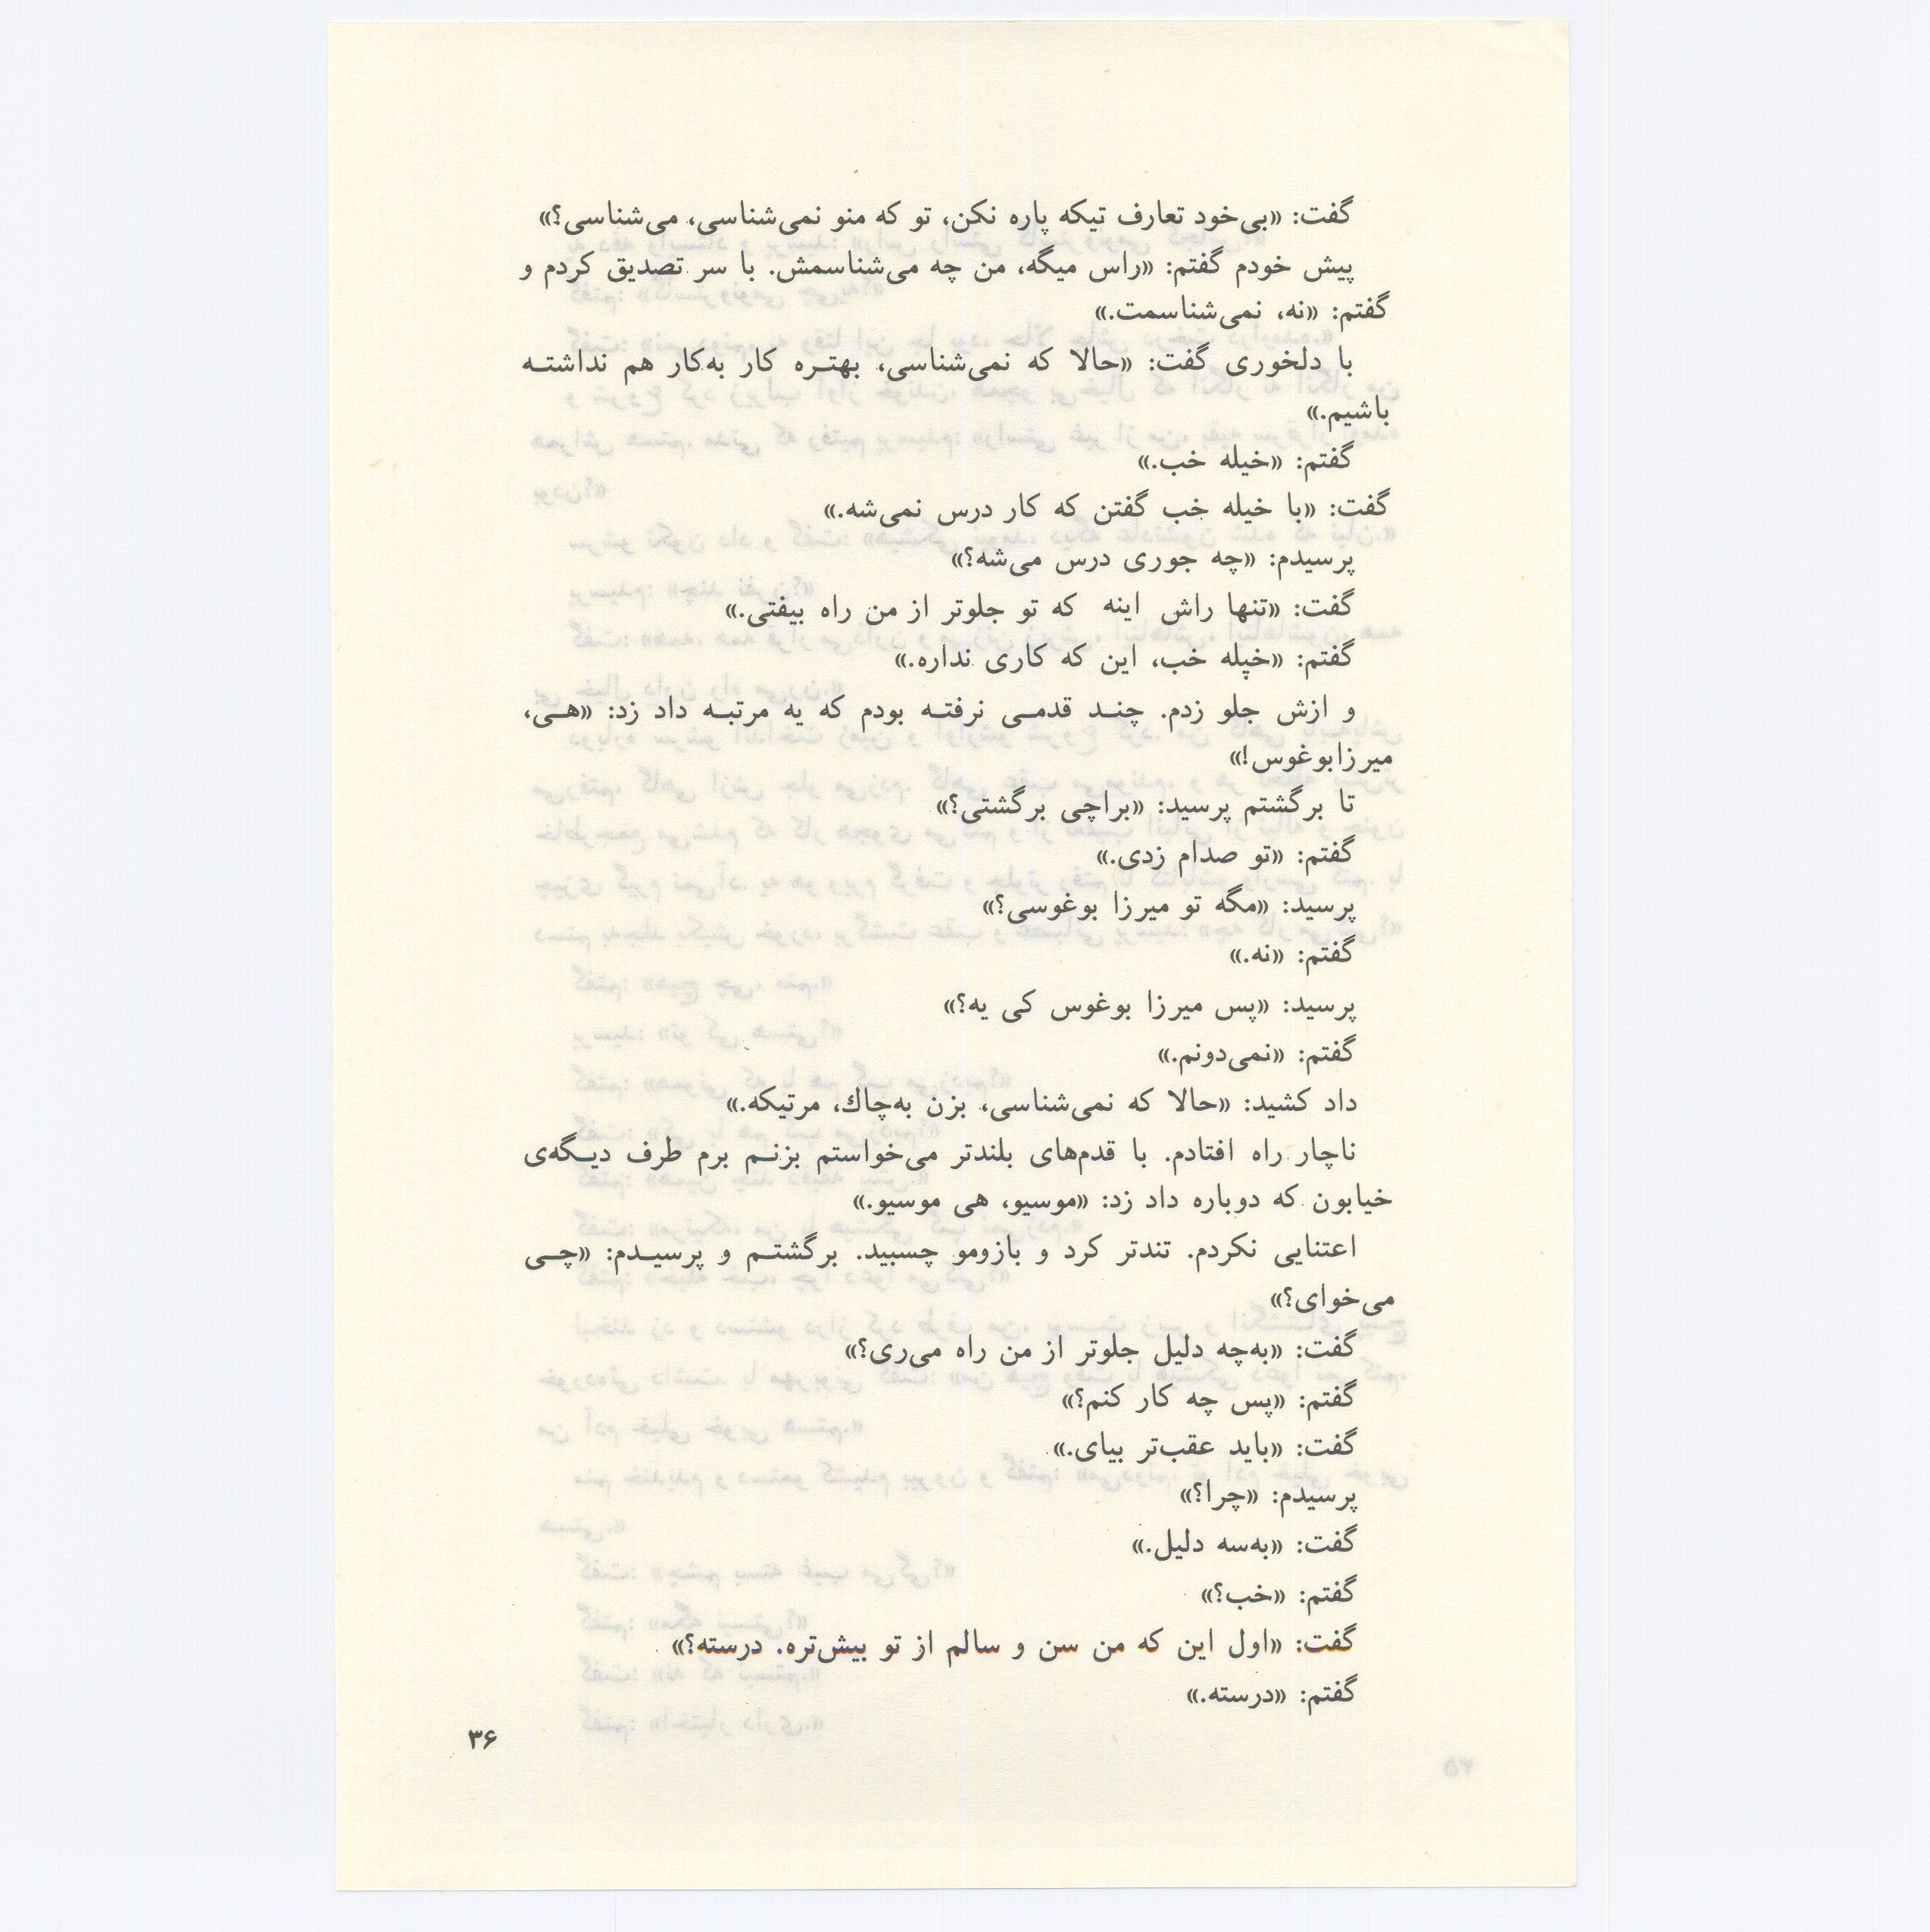 گفت: «بی‌خود تعارف تیکه پاره نکن، تو که منو نمی‌شناسی، می‌شناسی؟»
پیش خودم گفتم: «راس میگه، من چه می‌شناسمش. با سر تصدیق کردم و
گفتم: «نه، نمی‌شناسمت.»
با دلخوری گفت: «حالا که نمی‌شناسی، بهتـره کار به‌کار هم نداشتـه
باشیم.»
گفتم: «خیله خب.»
گفت: «با خیله خب گفتن که کار درس نمی‌شه.»
پرسیدم: «چه جوری درس می‌شه؟»
گفت: «تنها راش اینه که تو جلوتر از من راه بیفتی.»
گفتم: «خپله خب، این که کاری نداره.»
و ازش جلو زدم. چنـد قدمـی نرفتـه بودم که یه مرتبـه داد زد: «هـی،
میرزابوغوس!»
تا برگشتم پرسید: «براچی برگشتی؟»
گفتم: «تو صدام زدی.»
پرسید: «مگه تو میرزا بوغوسی؟»
گفتم: «نه.»
پرسید: «پس میرزا بوغوس کی یه؟»
گفتم: «نمی‌دونم.»
داد کشید: «حالا که نمی‌شناسی، بزن به‌چاك، مرتیکه.»
ناچار راه افتادم. با قدم‌های بلندتر می‌خواستم بزنـم برم طرف دیـگه‌ی
خیابون که دوباره داد زد: «موسیو، هی موسیو.»
اعتنایی نکردم. تندتر کرد و بازومو چسبید. برگشتـم و پرسیـدم: «چـی
می‌خوای؟»
گفت: «به‌چه دلیل جلوتر از من راه می‌ری؟»
گفتم: «پس چه کار کنم؟»
گفت: «باید عقب‌تر بیای.»
پرسیدم: «چرا؟»
گفت: «به‌سه دلیل.»
گفتم: «خب؟»
گفت: «اول این که من سن و سالم از تو بیش‌تره. درسته؟»
گفتم: «درسته.»
۳۶